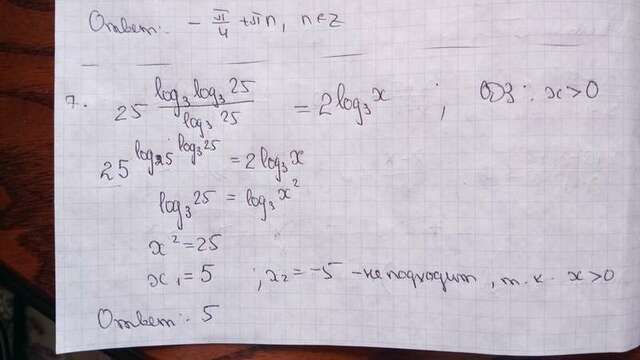 Ответ: - π/4 + πn, n∈Z
7. 25^(log₃ log₃ 25 / log₃ 25) = 2log₃x ; ОДЗ: x>0
25^(log₂₅ log₃ 25) = 2log₃x
log₃ 25 = log₃ x²
x² = 25
x₁ = 5 ; x₂ = -5 - не подходит, т.к. x>0
Ответ: 5